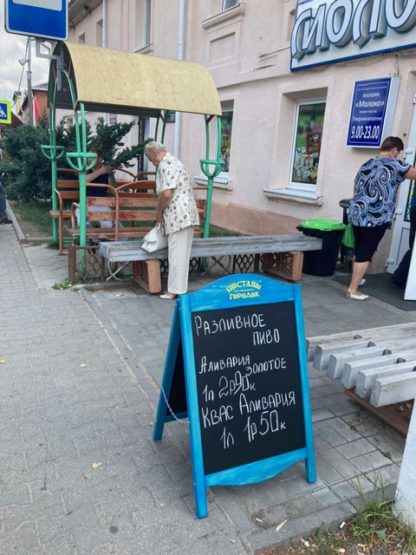 МОЛО
МАГАЗИН
«Молоко»
9.00-23.00
ПОСТАВЫ
ГОРОДОК
Разливное
пиво
Аливария
Золотое
1л 2р90к
Квас Аливария
1л 1р50к